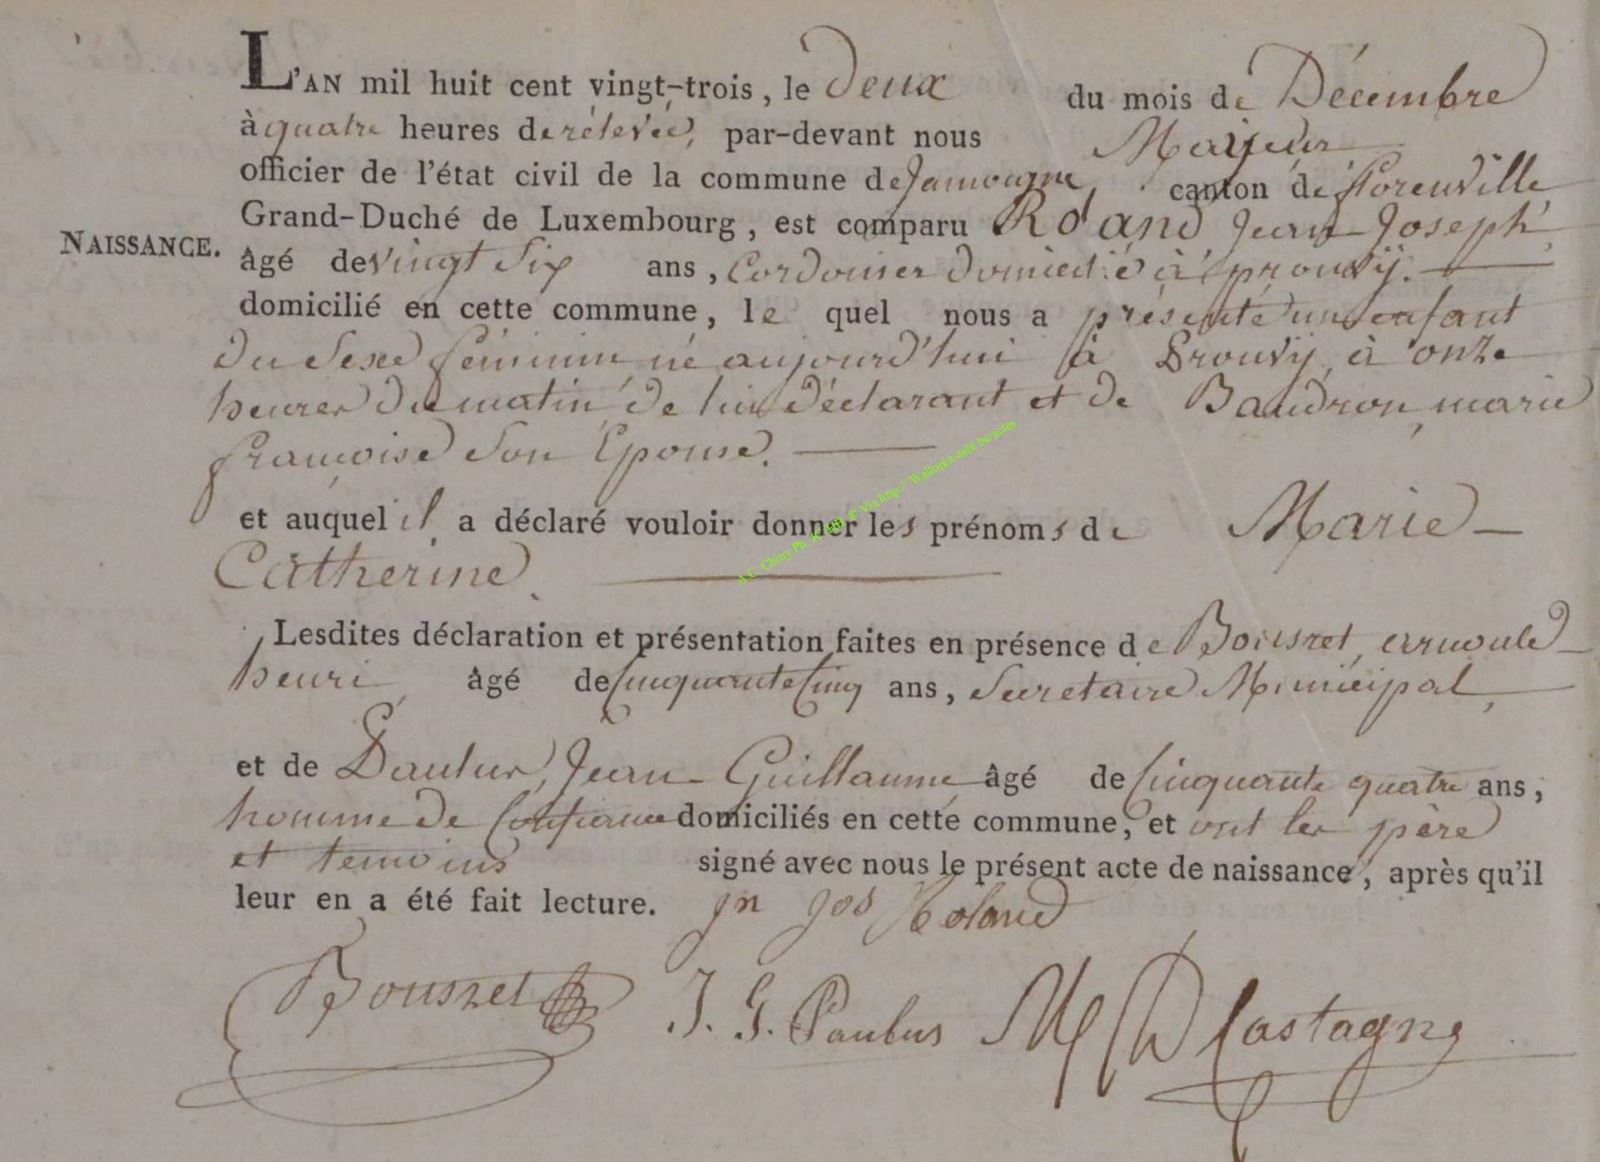 L'AN mil huit cent vingt-trois, le deux du mois de Décembre
à quatre heures de rélevée, par-devant nous Mayeur
officier de l'état civil de la commune de Jamoigne, canton de florenville
Grand-Duché de Luxembourg, est comparu Roland Jean Joseph,
NAISSANCE.
âgé de vingt Six ans, Cordonier domicilié à prouvÿ.
domicilié en cette commune, le quel nous a présenté un enfant
du Sexe féminin né aujourd'hui à Prouvÿ, à onze
heures du matin, de lui déclarant et de Baudron, marie
françoise Son Epouse.
et auquel il a déclaré vouloir donner les prénoms de Marie-
Catherine.
Lesdites déclaration et présentation faites en présence de Bousret, arnould
henri, âgé de Cinquante Cinq ans, Secretaire Municipal,
et de Paulus, Jean Guillaume âgé de Cinquante quatre ans,
homme de Confiance domiciliés en cette commune, et ont les père
et temoins signé avec nous le présent acte de naissance, après qu'il
leur en a été fait lecture. jn jos Roland
Bousret J. G. Paulus Lastagne
A.C. Chiny Ph. Via http:// Wallonia-asbl.be/actes